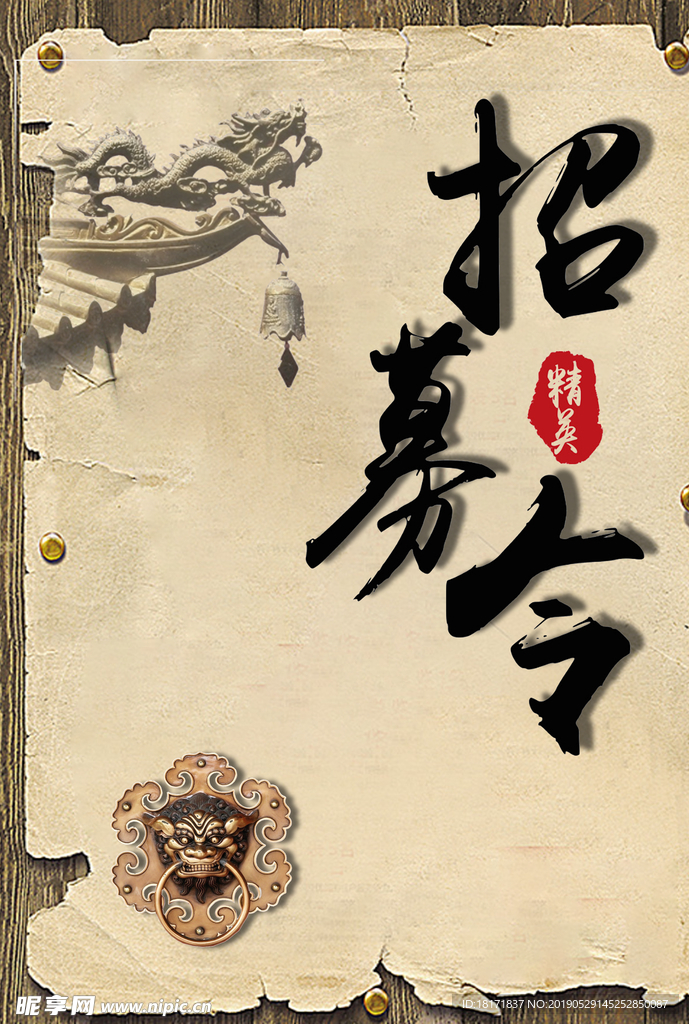 招募令
精英
昵享网 www.nipic.cn
ID:18171837 NO:20190529145252850087